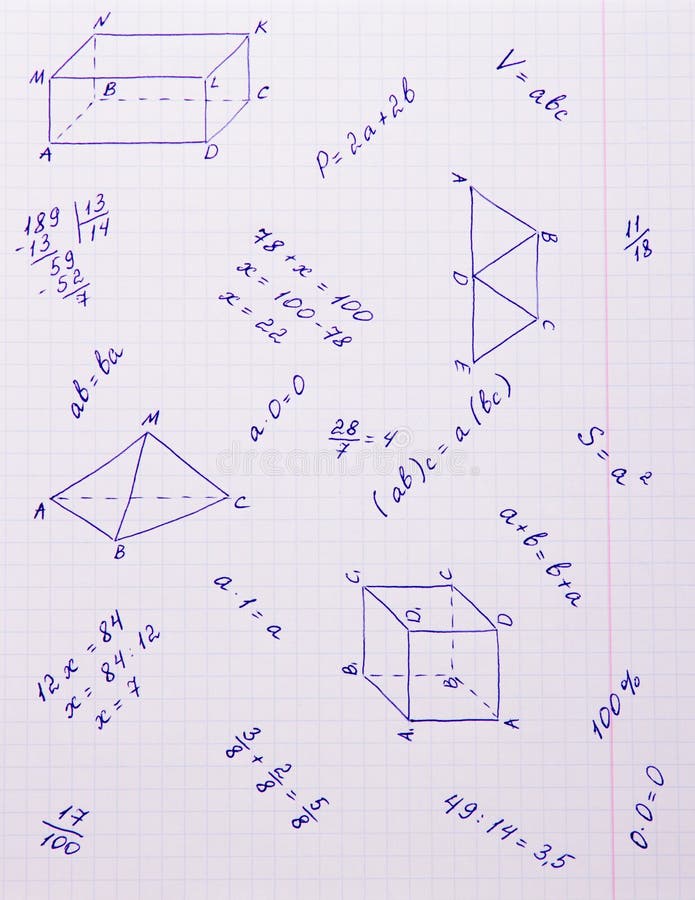 N
K
M
B
L
C
A
D
P=2a+2b
V=abc
189 | 13
-13 | 14
59
-52
7
78+x=100
x=100-78
x=22
A
B
D
C
E
11/18
ab=ba
a·0=0
28/7=4
(ab)c=a(bc)
S=a²
M
A
C
B
a+b=b+a
a·1=a
C₁
C
D₁
D
B₁
A₁
A
12x=84
x=84:12
x=7
100%
3/8+2/8=5/8
17/100
49:14=3,5
0·0=0
dreamstime